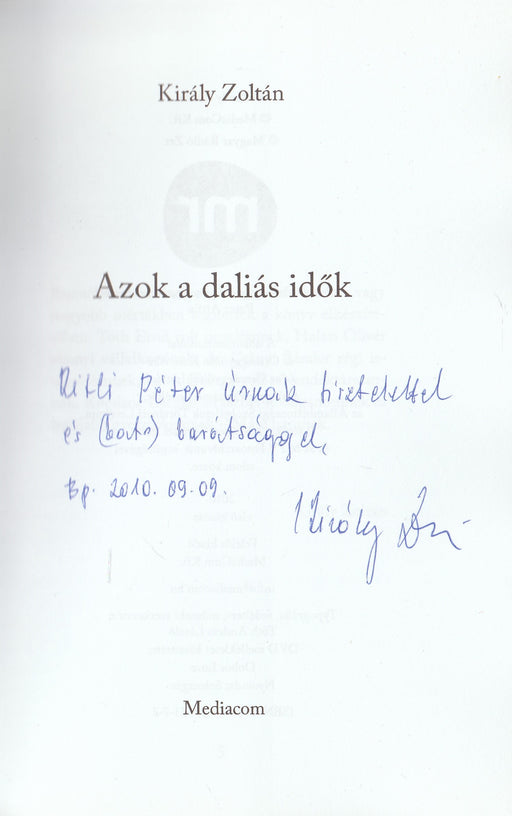 Király Zoltán
Azok a daliás idők
Péter úrnak tisztelettel
és barátsággal,
Bp. 2010. 09. 09.
Király
Mediacom